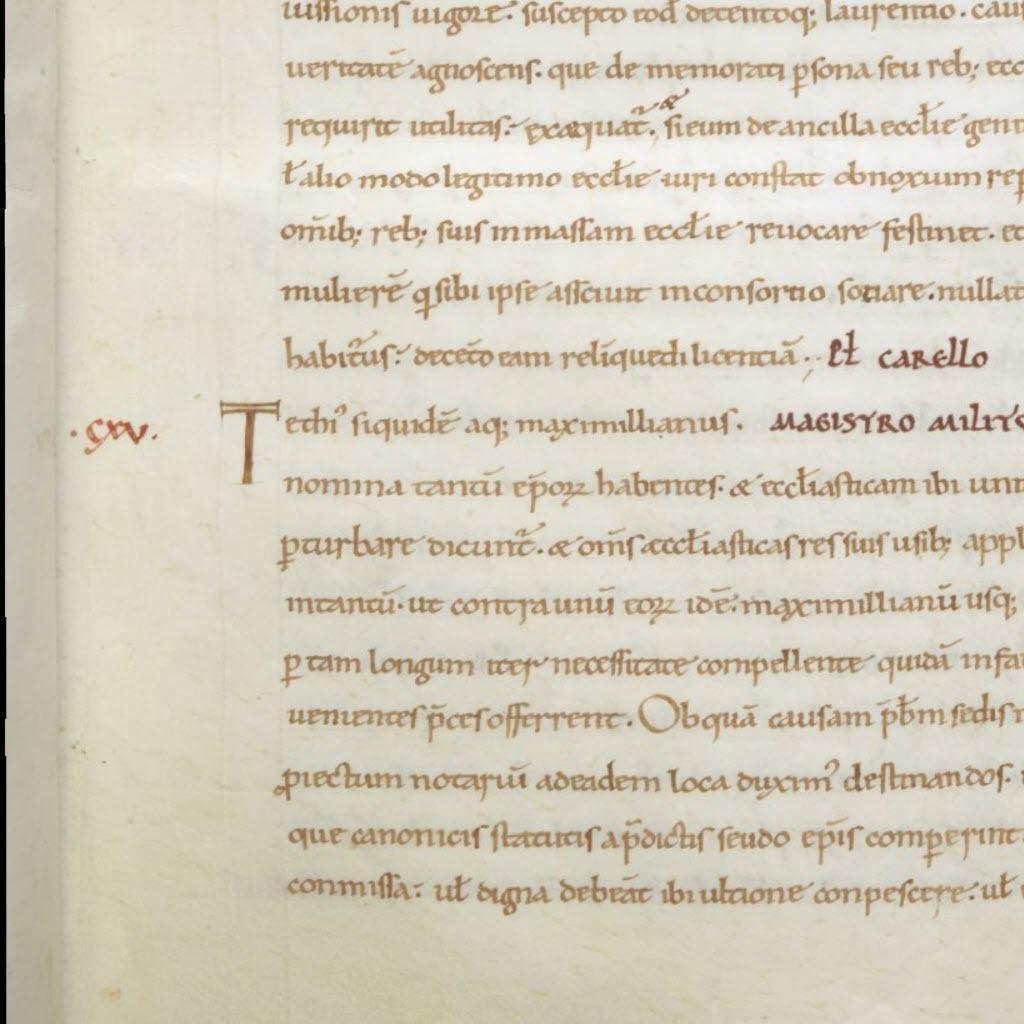 iussionis uigore. suscepto eod detentoq; laurentio. cau
ueritatē agnoscens. que de memorati psona seu reb; ecc
requirit utilitas. exæquat. & si eum de ancilla eccłie gent
ł alio modo legitimo eccłie iuri constat obnoxium rep
om̄ib; reb; suis in massam eccłie reuocare festinet. et
mulierē q sibi ipse ascīuit in consortio sotiare. nullat
habit̄us: decet̄o eam relīquedi licentiā. Pł CARELLO
.CXV. Tethi' siquidē aq; maximillianus. MAGISTRO MILIT
nomina tantū ep̄oꝝ habentes. & eccłiasticam ibi unit
ꝑturbare dicunt̄. & om̄s æccłiasticas res suis usib; appl
intantū. ut contra unū eoꝝ idē. maximillianū usq;
ꝑ tam longum iter necessitate compellente quidā infa
uenientes p̄ces offerrent. Ob quā causam p̄bm sedis n
ꝓiectum notariū ad eadem loca duxim' destinandos.
que canonicis statutis a p̄dictis seudo ep̄is comꝑerint
conmissa: uł digna debeāt ibi ultione conpescere. uł